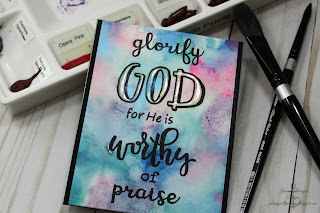 Opera Pink
glorify
GOD
for He is
worthy
of
praise